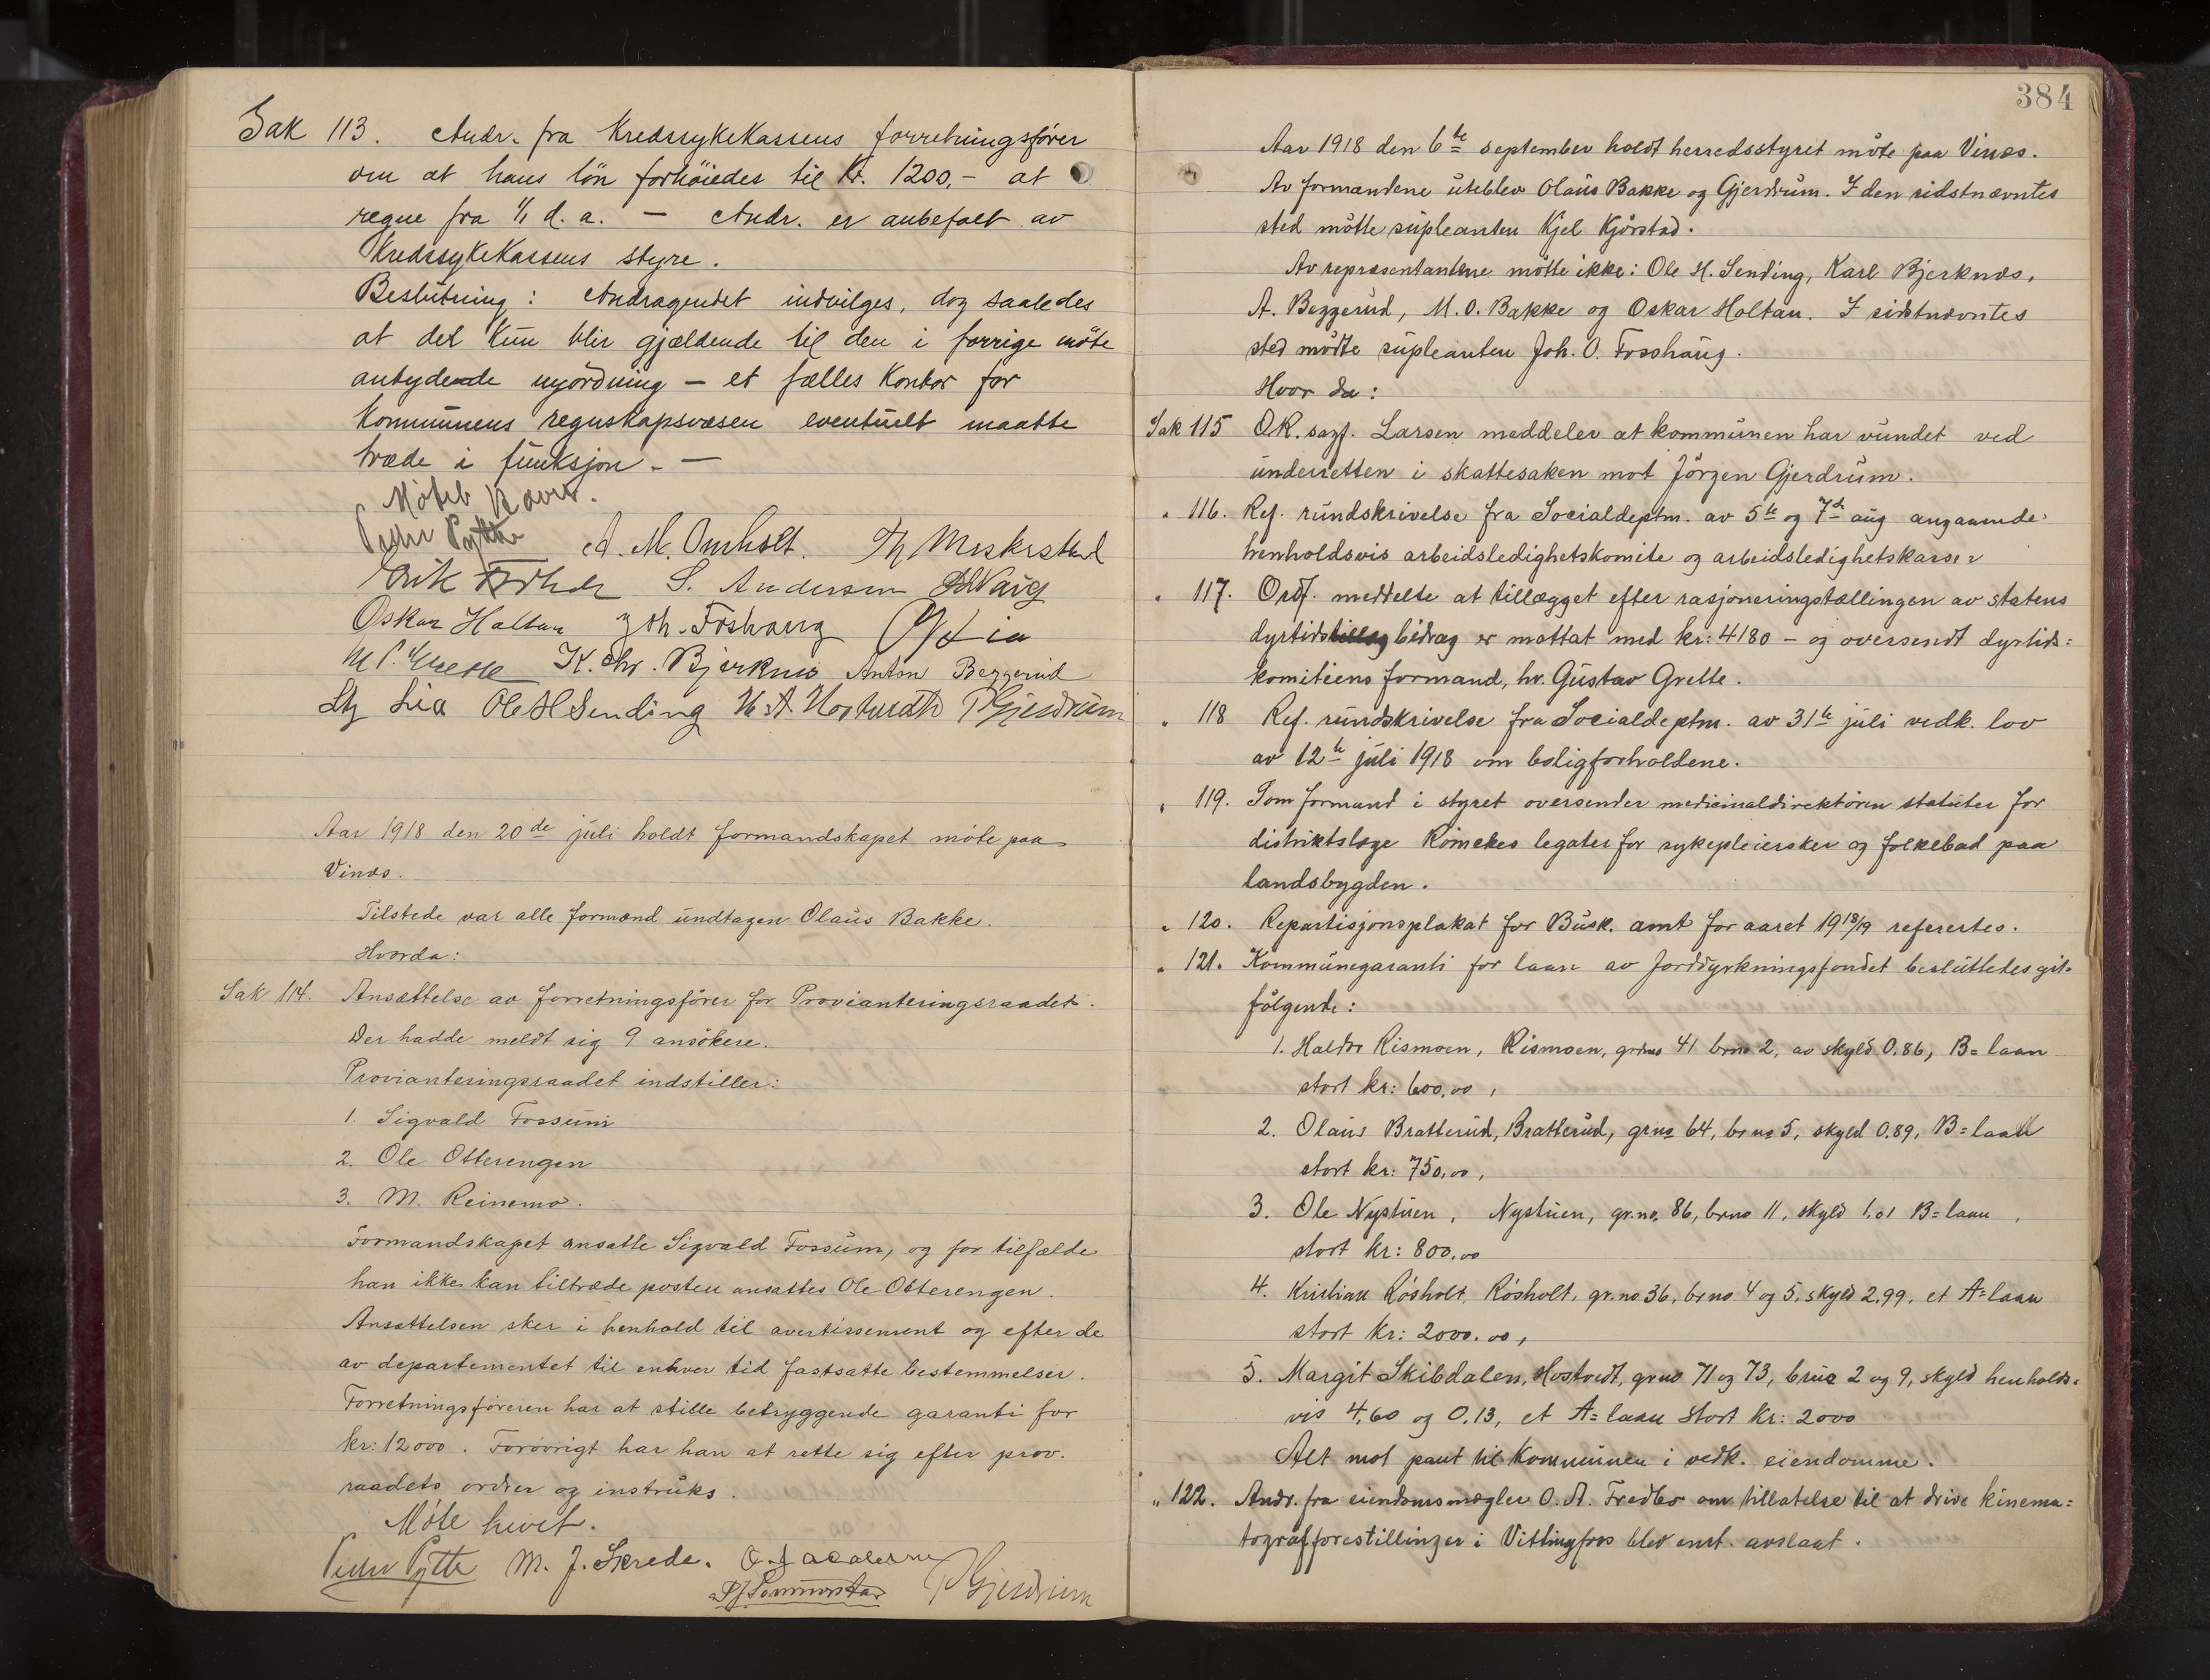 Sak 113. Andr. fra Kredssykekassens forretningsfører
om at hans lön forhöiedes til Kr. 1200,- at
regne fra 1/1 d. a. — Andr. er anbefalt av
Kredssykekassens styre.
Beslutning: Andragendet indvilges, dog saaledes
at det kun blir gjældende til den i forrige möte
antydende nyordning — et fælles kontor for
kommunens regnskapsvæsen eventuelt maatte
træde i funksjon. —
Möteb hævet.
Peder Pytte A. M. Omholt. Th Meskestad
Erik S. Andersen
Oskar Holtan Joh. Foshaug Lia
K. Chr. Bjerknæs Anton Beggerud
Lia Ole H Sending H. A. Hostvedt P Gjerdrum
Aar 1918 den 20de juli holdt formandskapet möte paa
Vinæs.
Tilstede var alle formænd undtagen Olaus Bakke.
Hvorda:
Sak 114. Ansættelse av forretningsförer for Provianteringsraadet.
Der hadde meldt sig 9 ansökere.
Provianteringsraadet indstiller:
1. Sigvald Fossum
2. Ole Otterengen
3. M. Reinemo.
Formandskapet ansatte Sigvald Fossum, og for tilfælde
han ikke kan tiltræde posten ansattes Ole Otterengen.
Ansættelsen sker i henhold til avertissement og efter de
av departementet til enhver tid fastsatte bestemmelser.
Forretningsföreren har at stille betryggende garanti for
kr: 12000. Forövrigt har han at rette sig efter prov.
raadets ordrer og instruks.
Möte hevet.
Peder Pytte M. J. Skrede. O. J. Aaalerne
P Gjerdrum
384
Aar 1918 den 6te september holdt herredsstyret möte paa Vinæs.
Av formændene uteblev Olaus Bakke og Gjerdrum. I den sidstnævntes
sted mötte supleanten Kjel Kjörstad.
Av representantene mötte ikke: Ole H. Sending, Karl Bjerknæs,
A. Beggerud, M. O. Bakke og Oskar Holtan. I sidstnævntes
sted mödte supleanten Joh. O. Fosshaug.
Hvor da:
Sak 115 O.R. sagf. Larsen meddeler at kommunen har vundet ved
underretten i skattesaken mot Jörgen Gjerdrum.
" 116. Ref. rundskrivelse fra Socialdeptm. av 5te og 7de aug angaaende
henholdsvis arbeidsledighetskomite og arbeidsledighetskasser
" 117. Ordf. meddelte at tillægget efter rasjoneringstællingen av statens
dyrtidstillæg bidrag er mottat med kr: 4180 — og oversendt dyrtids=
komitéens formand, hr. Gustav Grette.
" 118 Ref. rundskrivelse fra Socialdeptm. av 31te juli vedk. lov
av 12te juli 1918 om boligforholdene.
" 119. Som formand i styret oversender medicinaldirektören statuter for
distriktslæge Römckes legater for sykepleiersker og folkebad paa
landsbygden.
" 120. Repartisjonsplakat for Busk. amt for aaret 1918/19 refererte s.
" 121. Kommunegaranti for laan av Jorddyrkningsfondet besluttedes git
fölgende:
1. Haldor Rismoen, Rismoen, grno 41 brno 2, av skyld 0.86, B=laan
stort kr: 600,00,
2. Olaus Bratterud, Bratterud, grno 64, brno 5, skyld 0.89, B=laan
stort kr: 750,00,
3. Ole Nystuen, Nystuen, gr.no. 86, brno 11, skyld 1.01 B=laan,
stort kr: 800,00
4. Kristian Rösholt, Rösholt, gr.no 36, brno 4 og 5, skyld 2,99, et A=laan
stort kr: 2000.00,
5. Margit Skibdalen, Hostvedt, grno 71 og 73, brno 2 og 9, skyld henholds=
vis 4,60 og 0,13, et A=laan stort kr: 2000
Alt mot pant til kommunen i vedk. eiendomme.
" 122. Andr. fra eiendomsmægler O. A. Fredbo om tillatelse til at drive kinema=
tografforestillinger i Vittingfos blev enst. avslaat.